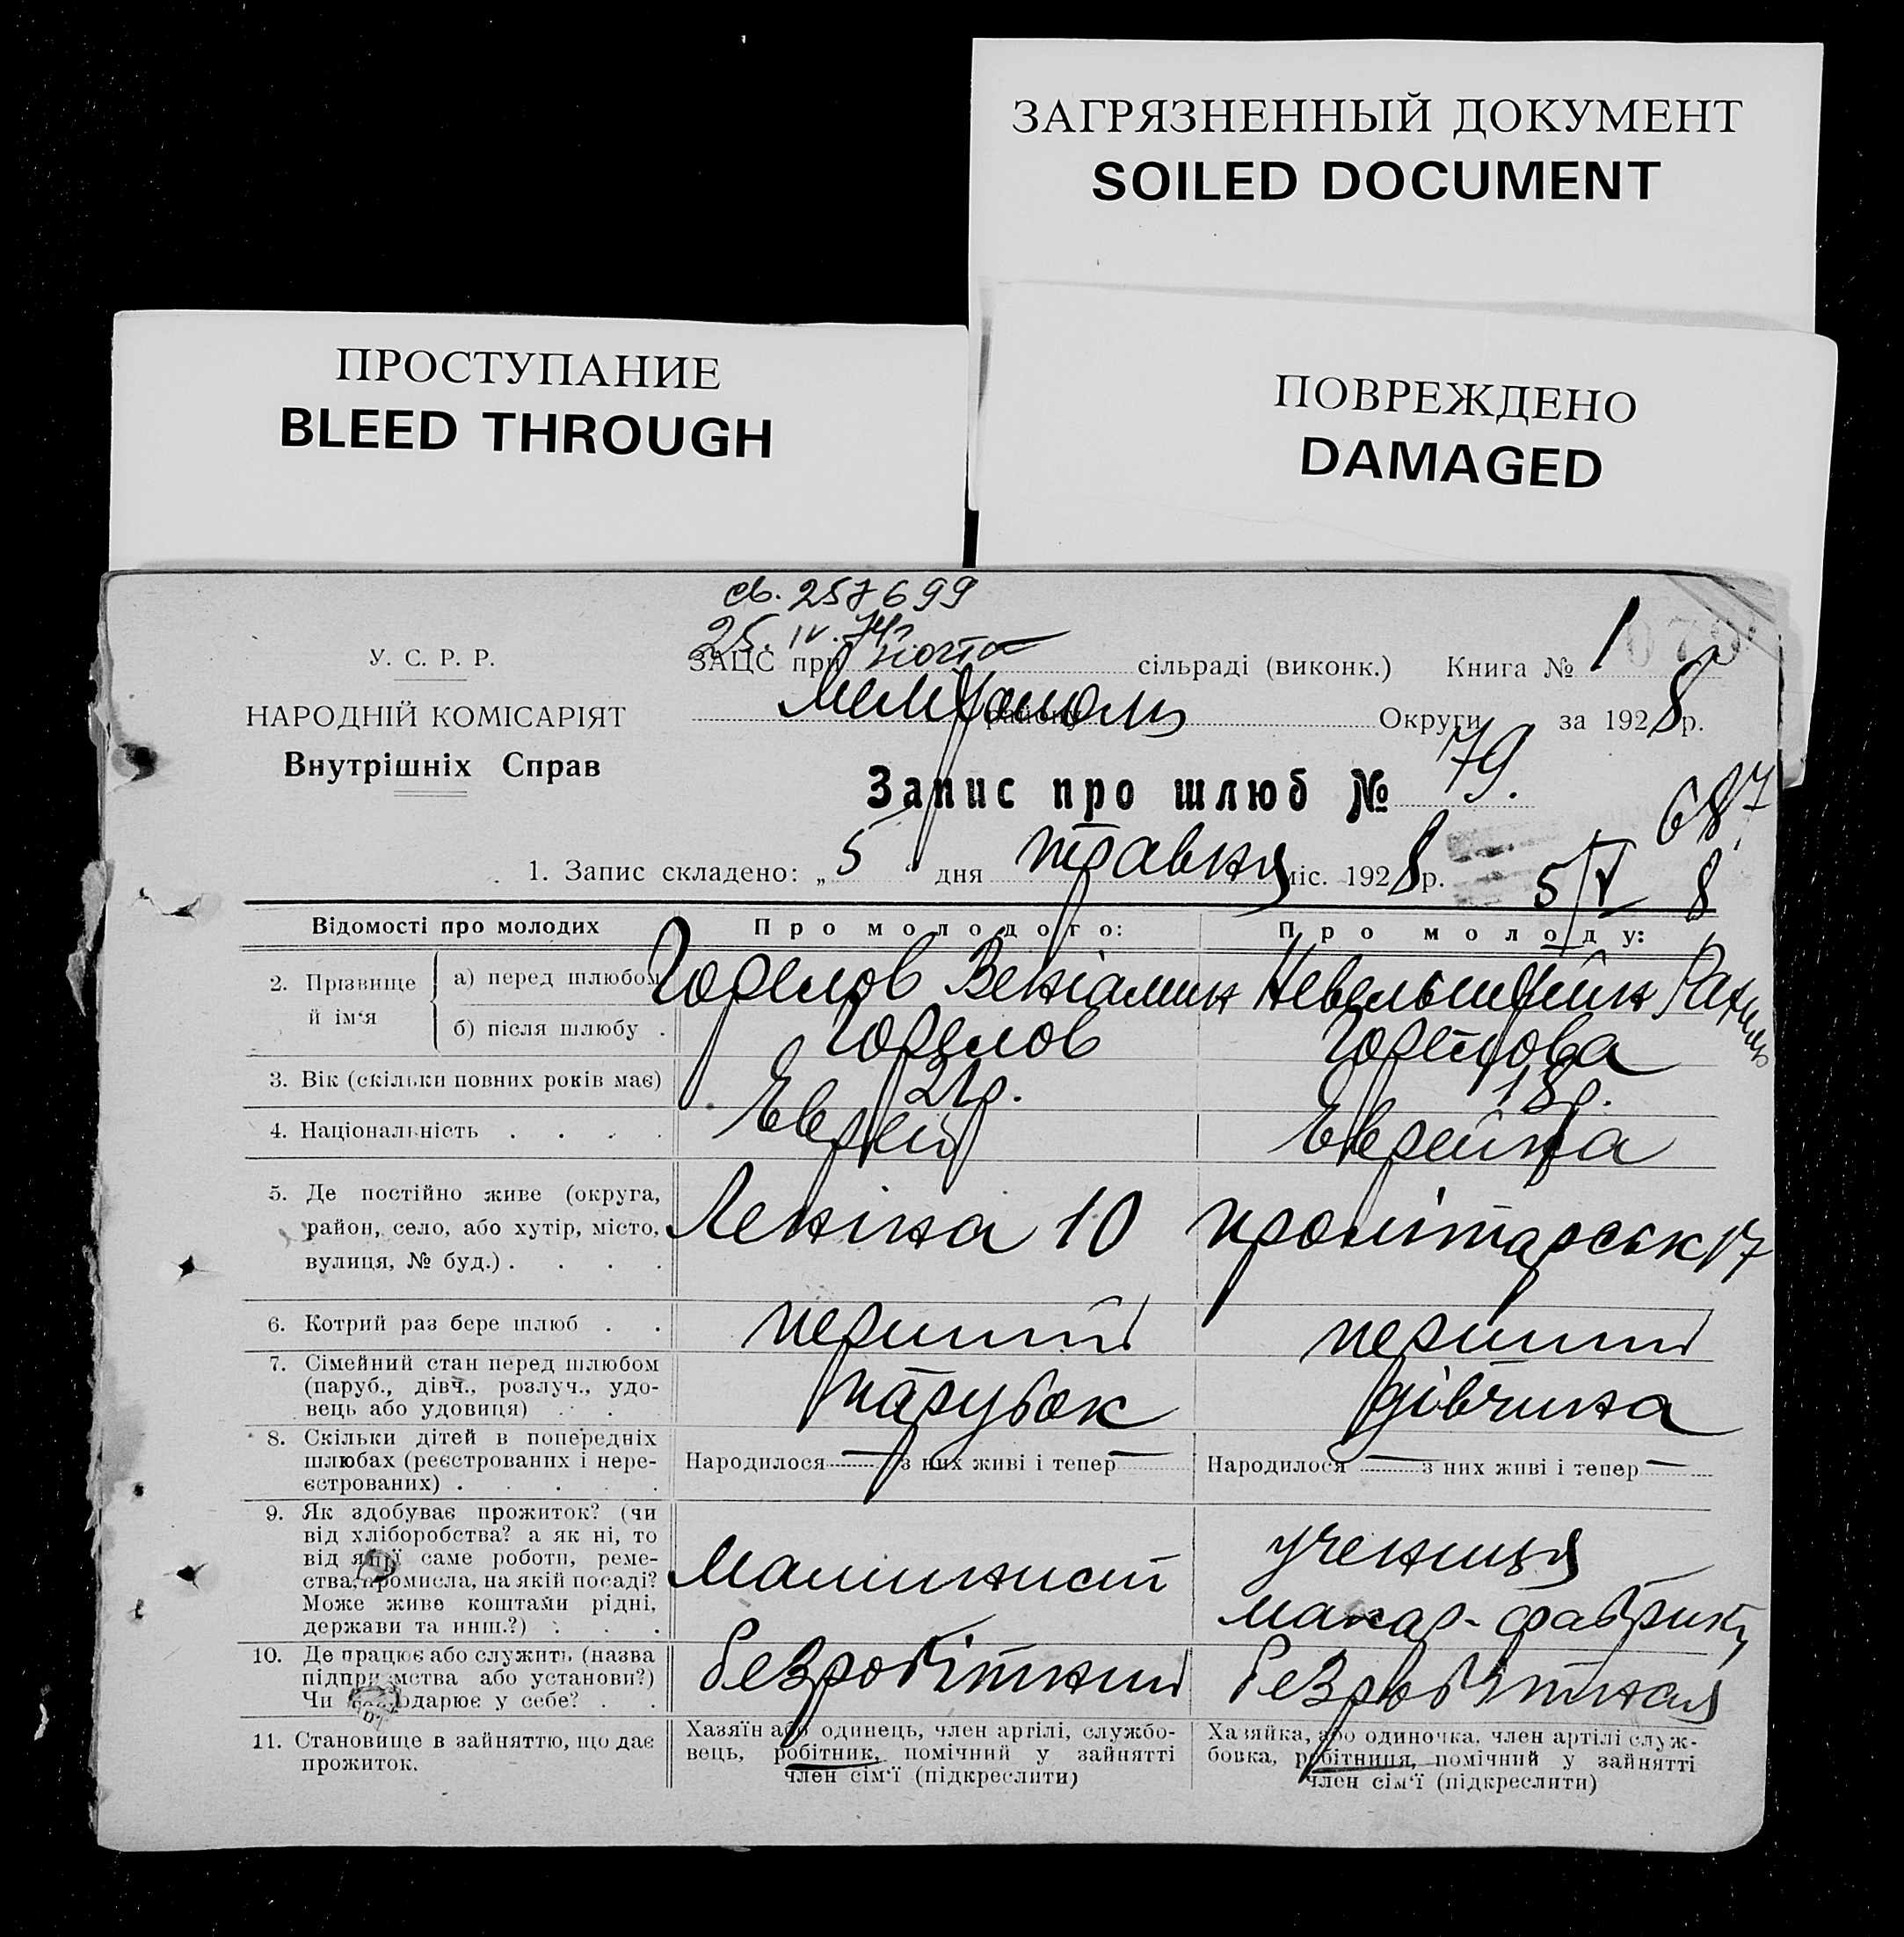 ЗАГРЯЗНЕННЫЙ ДОКУМЕНТ
SOILED DOCUMENT
ПРОСТУПАНИЕ
BLEED THROUGH
ПОВРЕЖДЕНО
DAMAGED
св. 257699
25. IV. 74г.
У. С. Р. Р.
ЗАЦС при сільраді (виконк.) Книга № 1
НАРОДНІЙ КОМІСАРІЯТ
Мелітополь району Округи за 1928 р.
Внутрішніх Справ
Запис про шлюб № 79.
687
1. Запис складено: „5" дня травня міс. 1928 р.
5/V 8
Відомості про молодих
Про молодого:
Про молоду:
2. Прізвище й ім'я
а) перед шлюбом
Горелов Веніамин
Невельштейн Рахиль
б) після шлюбу .
Горелов
Горелова
3. Вік (скільки повних років має)
21р.
18р.
4. Національність . . . .
Еврей
Еврейка
5. Де постійно живе (округа,
район, село, або хутір, місто,
вулиця, № буд.) . . . .
Леніна 10
пролітарськ 17
6. Котрий раз бере шлюб . .
перший
перший
7. Сімейний стан перед шлюбом
(паруб., дівч., розлуч., удо-
вець або удовиця) . .
парубок
дівчина
8. Скільки дітей в попередніх
шлюбах (реєстрованих і нере-
єстрованих) . . . . .
Народилося — з них живі і тепер —
Народилося — з них живі і тепер —
9. Як здобуває прожиток? (чи
від хліборобства? а як ні, то
від якої саме роботи, реме-
ства, промисла, на якій посаді?
Може живе коштами рідні,
держави та инш.?) . . .
Машинист
учениця
макар-фабрики
10. Де працює або служить (назва
підприємства або установи?)
Чи господарює у себе? . .
безробітний
безробітная
11. Становище в зайняттю, що дає
прожиток.
Хазяїн або одинець, член артілі, службо-
вець, робітник, помічний у зайнятті
член сім'ї (підкреслити)
Хазяйка, або одиночка, член артілі служ-
бовка, робітниця, помічний у зайнятті
член сім'ї (підкреслити)